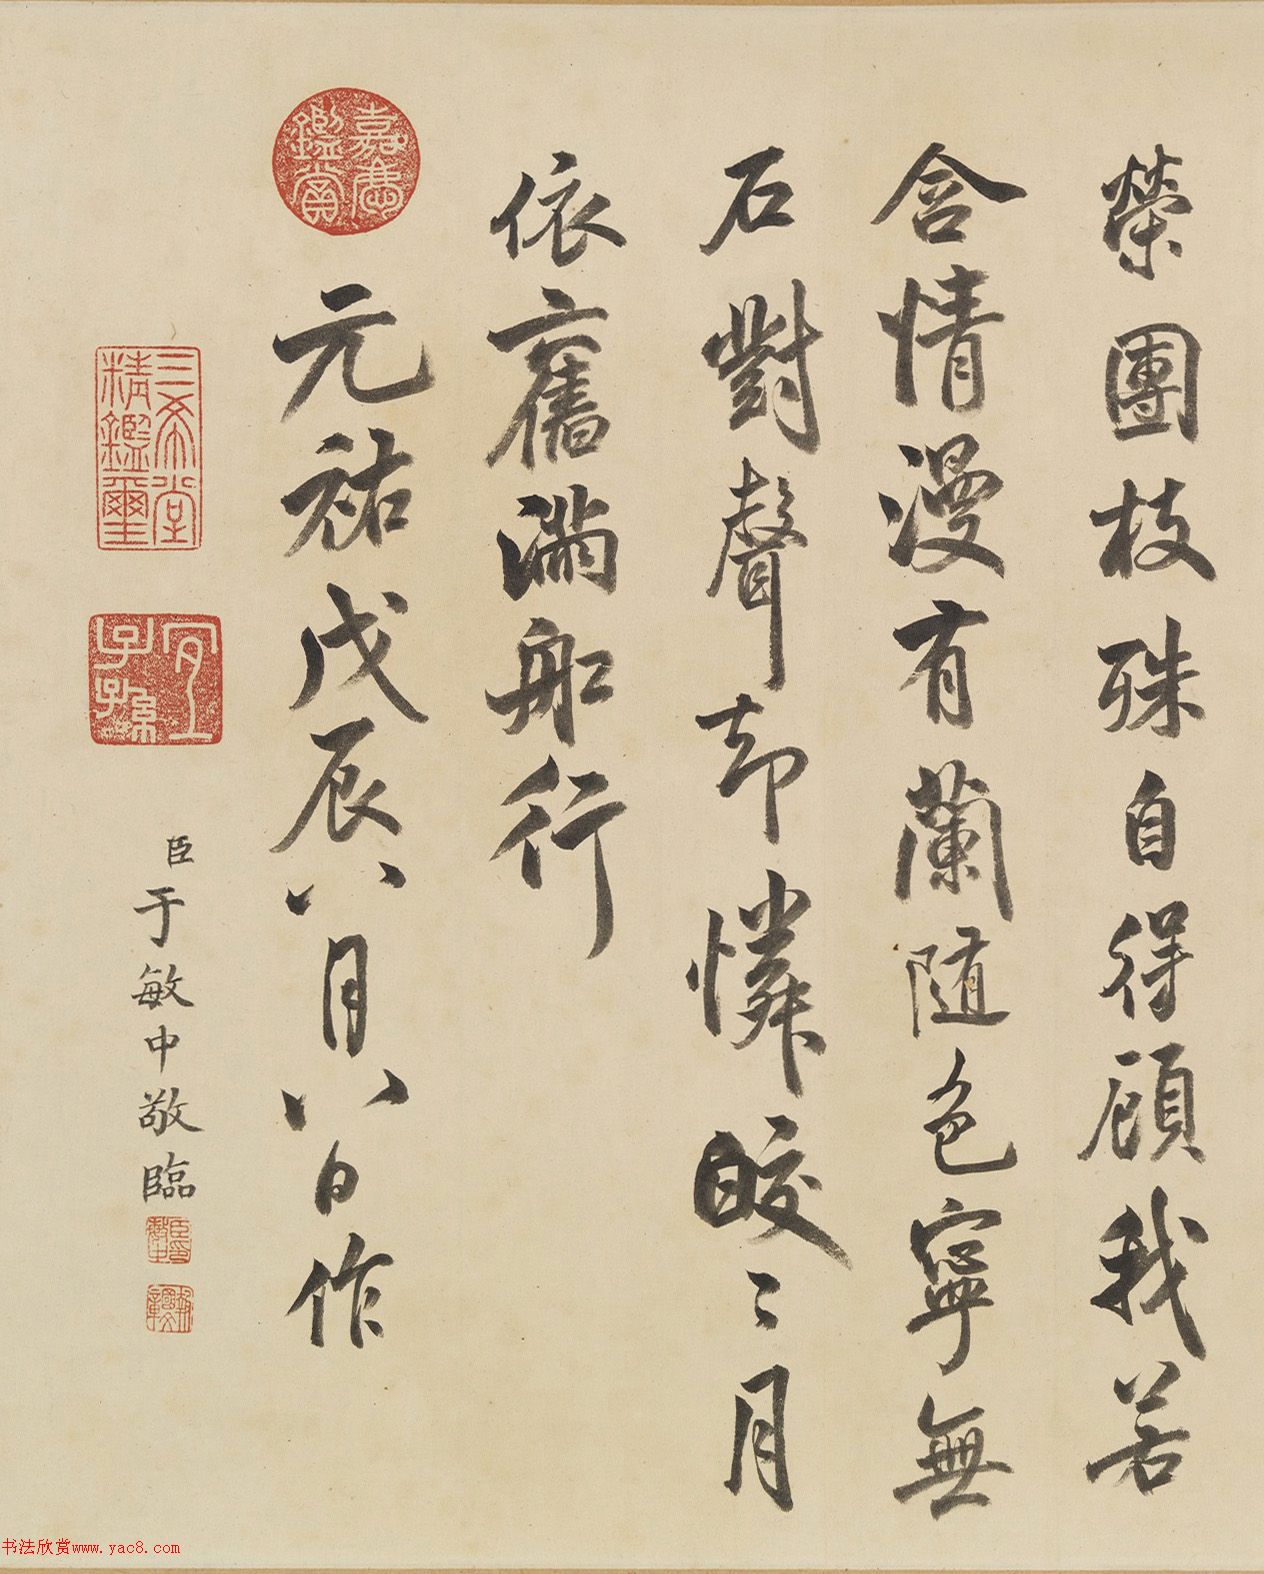 縈團枝殊自得顧我若
含情漫有蘭隨色寧無
石對聲却憐皎〻月
依舊滿舡行
元祐戊辰八月八日作
嘉慶鑑賞
三希堂精鑑璽
宜子孫
臣于敏中敬臨
书法欣赏www.yac8.com